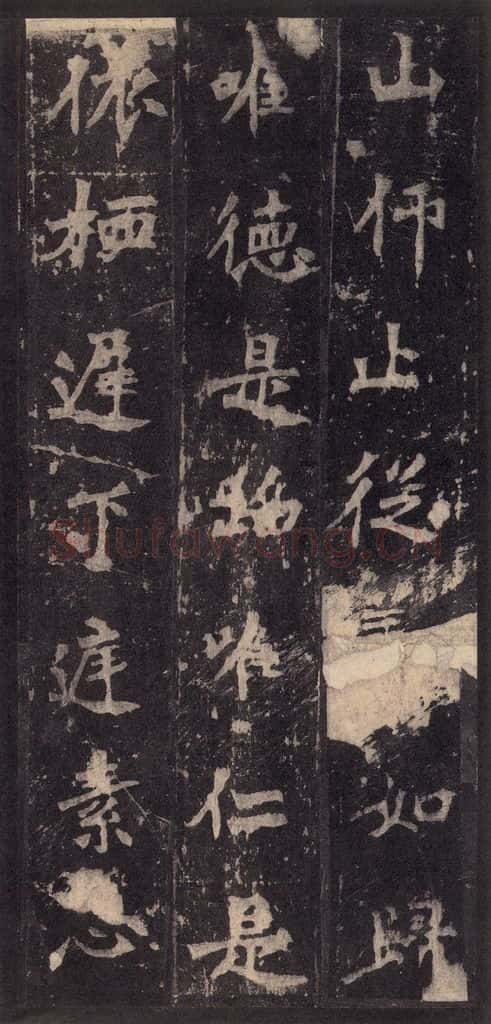 山仰止從如歸
唯德是唯仁是
依栖遲下庭素心
shufawang.cn